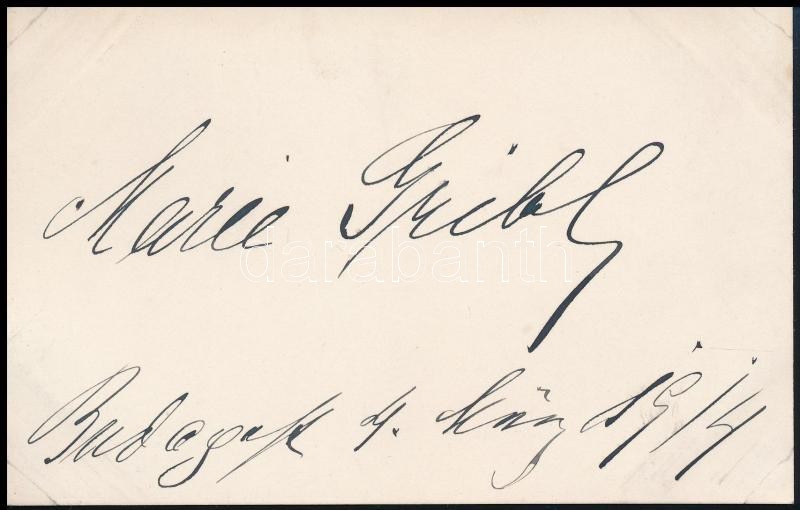 Marie Gribl
Budapest 4. März 1914
darabanth